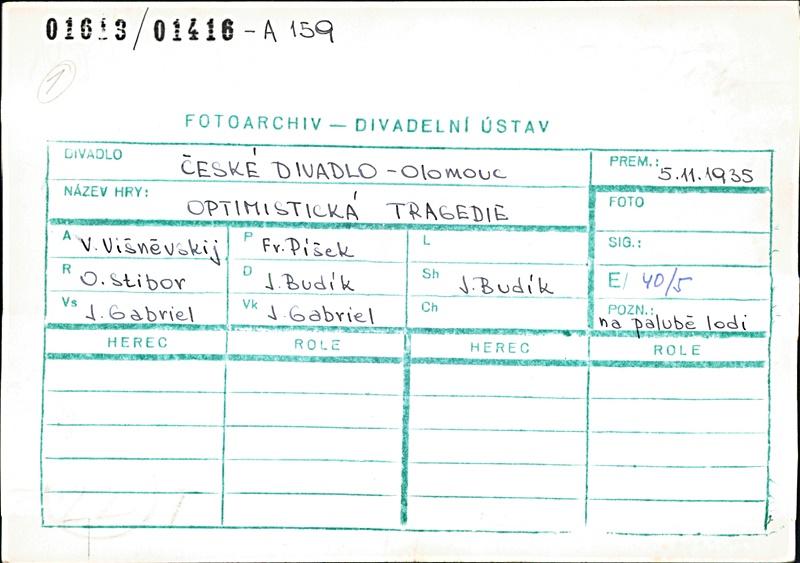 01613/01416 - A 159
1
FOTOARCHIV — DIVADELNÍ ÚSTAV
DIVADLO ČESKÉ DIVADLO - Olomouc
PREM.: 5.11.1935
NÁZEV HRY: OPTIMISTICKÁ TRAGEDIE
FOTO
A V. Višněvskij P Fr. Píšek L
SIG.:
R O. Stibor D J. Budík Sh J. Budík
E/ 40/5
Vs J. Gabriel Vk J. Gabriel Ch
POZN.: na palubě lodi
HEREC ROLE HEREC ROLE